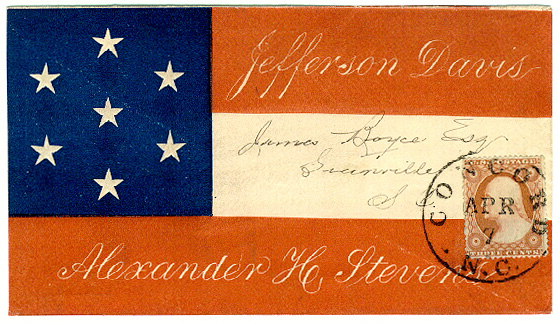 Jefferson Davis
James Boyce Esq
Greenville
S C
U.S. POSTAGE
CONCORD
APR
7
N.C.
THREE CENTS
Alexander H. Stevens